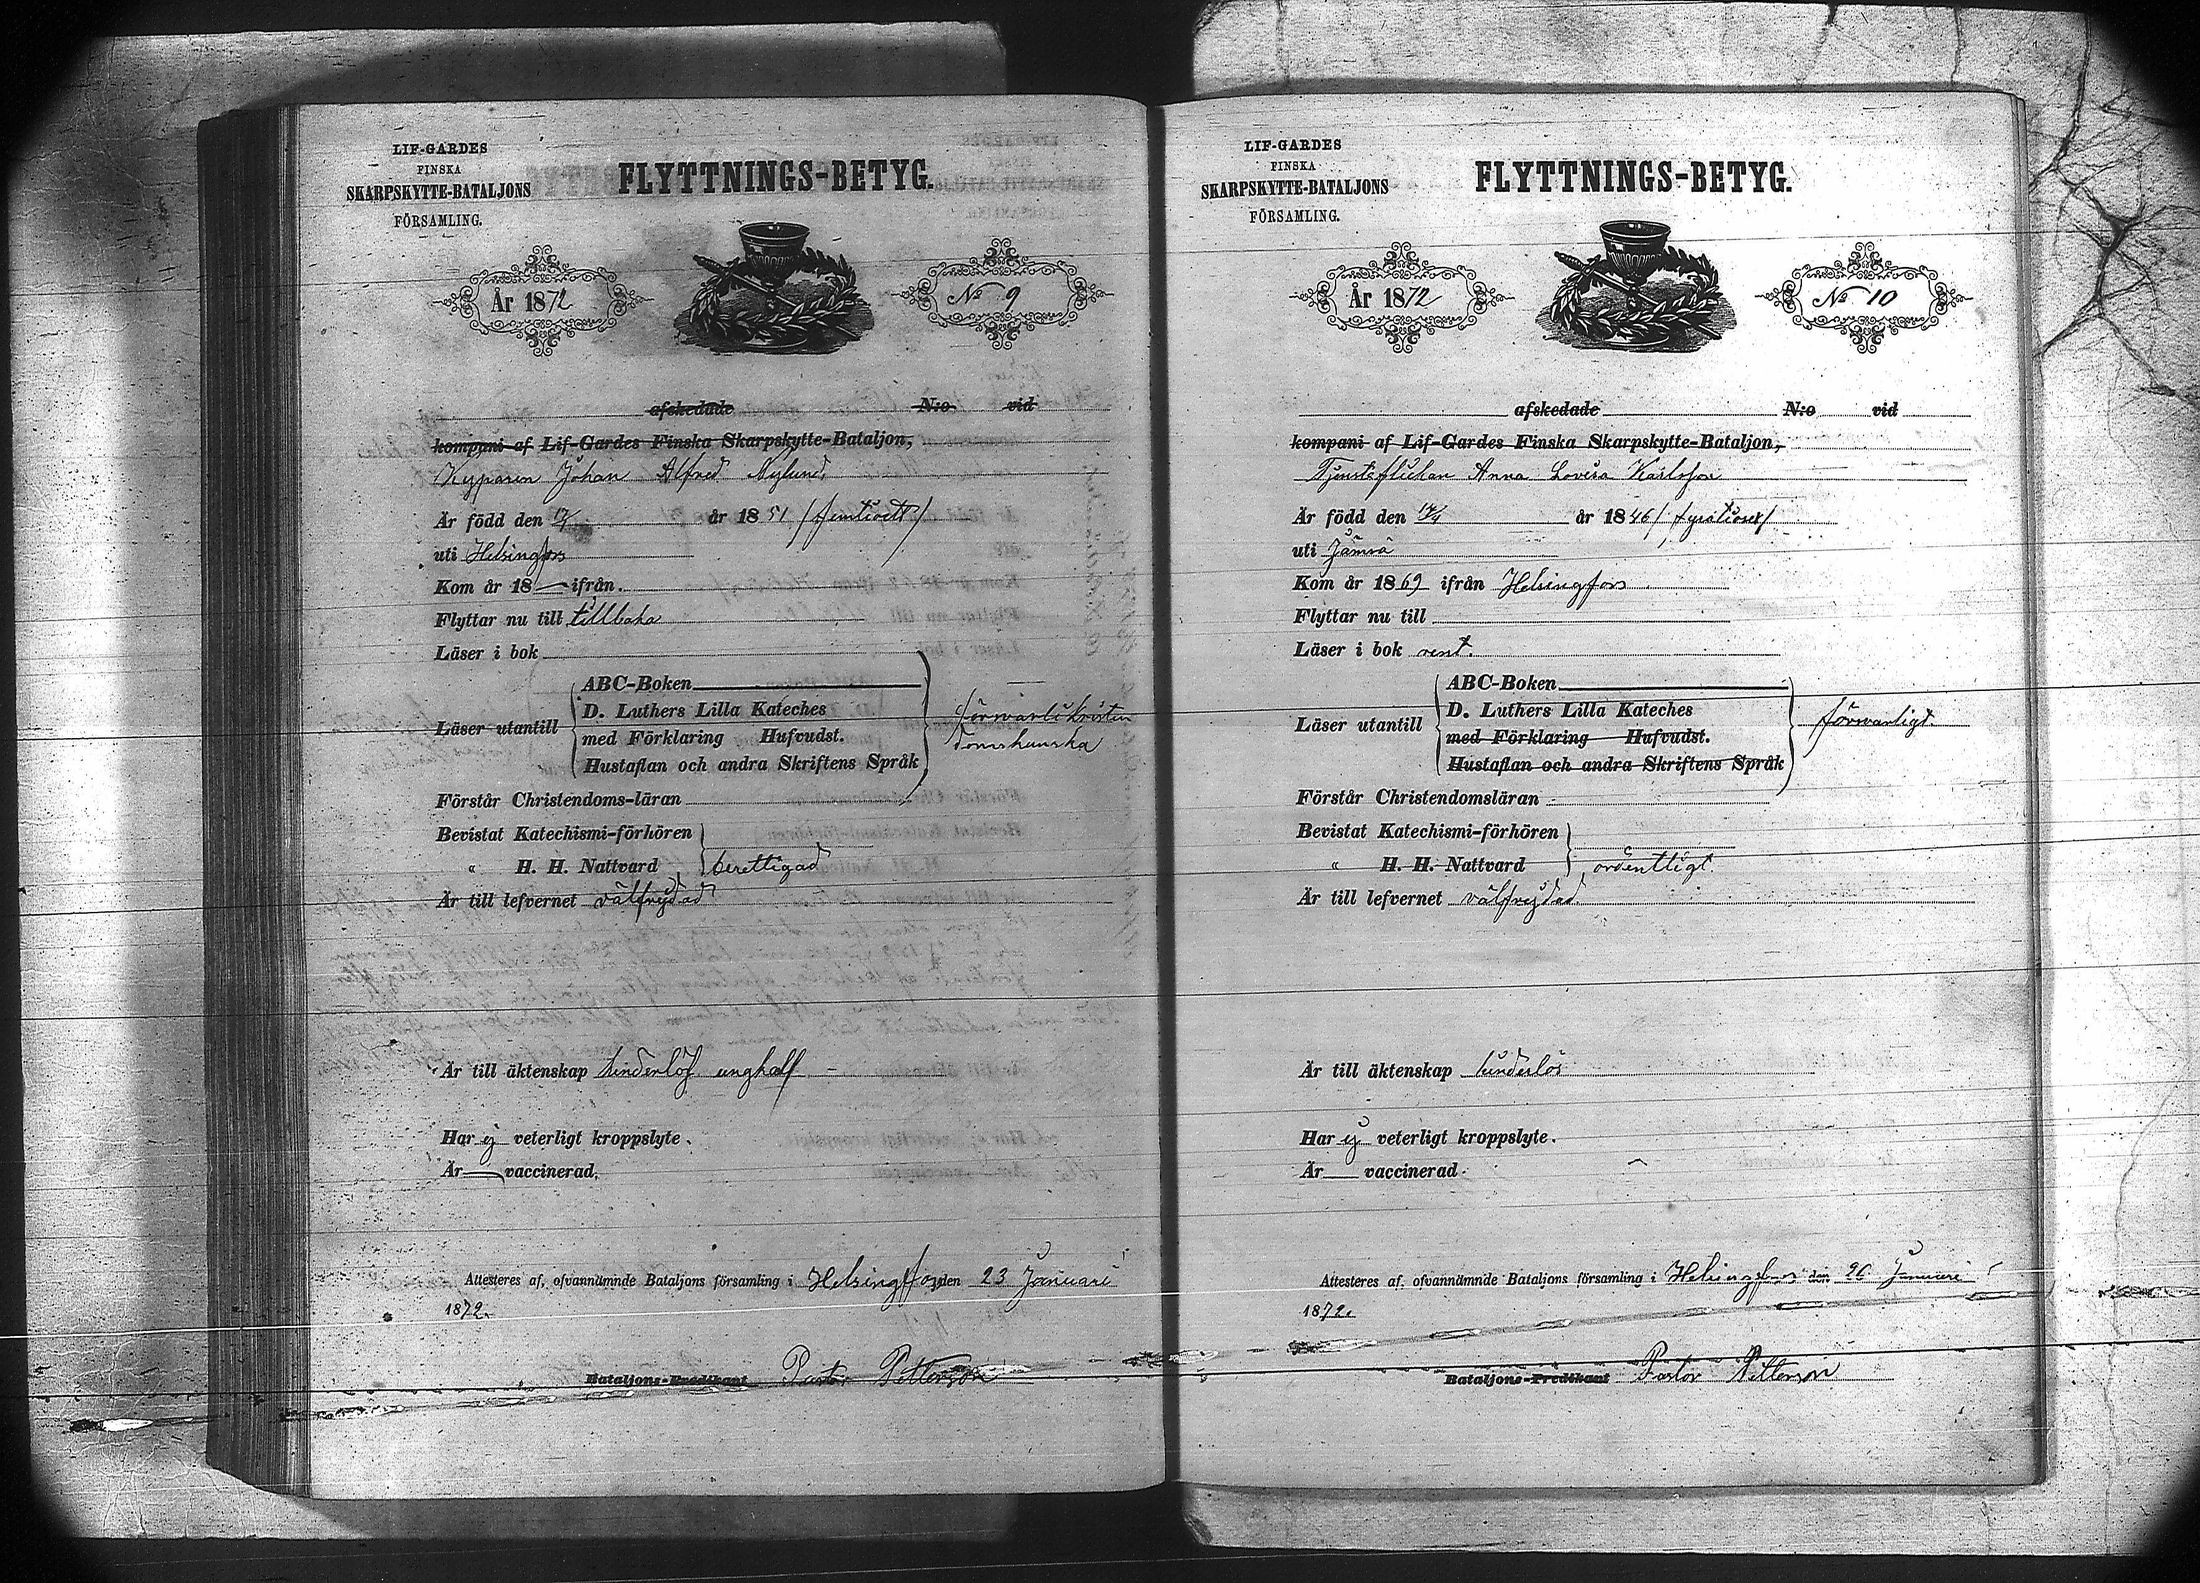 LIF-GARDES
FINSKA
SKARPSKYTTE-BATALJONS
FÖRSAMLING.
FLYTTNINGS-BETYG.
År 1872
No 9
afskedade N:o vid
kompani af Lif-Gardes Finska Skarpskytte-Bataljon,
Kyparen Johan Alfred Nylund,
Är född den 17/ år 1851 /femtioett/
uti Helsingfors
Kom år 18— ifrån.
Flyttar nu till tillbaka
Läser i bok
ABC-Boken
D. Luthers Lilla Kateches
Läser utantill
med Förklaring Hufvudst.
Hustaflan och andra Skriftens Språk
försvarli kristen
domskunska
Förstår Christendoms-läran
Bevistat Katechismi-förhören
" H. H. Nattvard berettigad
Är till lefvernet välfrejdad
Är till äktenskap hinderlös
Har ej veterligt kroppslyte.
Är — vaccinerad.
Attesteres af, ofvannämnde Bataljons församling i Helsingfors den 23 Januari
1872.
Bataljons-Predikant Pastor Petterson
LIF-GARDES
FINSKA
SKARPSKYTTE-BATALJONS
FÖRSAMLING.
FLYTTNINGS-BETYG.
År 1872
No 10
afskedade N:o vid
kompani af Lif-Gardes Finska Skarpskytte-Bataljon,
Tjensteflickan Anna Lovisa Karlsson
Är född den 17/4 år 1846 / fyratiosex/
uti Jämsä
Kom år 1869 ifrån Helsingfors
Flyttar nu till
Läser i bok rent.
ABC-Boken
D. Luthers Lilla Kateches
Läser utantill försvarligt
med Förklaring Hufvudst.
Hustaflan och andra Skriftens Språk
Förstår Christendomsläran
Bevistat Katechismi-förhören
" H. H. Nattvard ordentligt.
Är till lefvernet välfrejdad
Är till äktenskap hinderlös
Har ej veterligt kroppslyte.
Är — vaccinerad.
Attesteres af, ofvannämnde Bataljons församling i Helsingfors den 26 Januari
1872.
Bataljons-Predikant Pastor Petterson